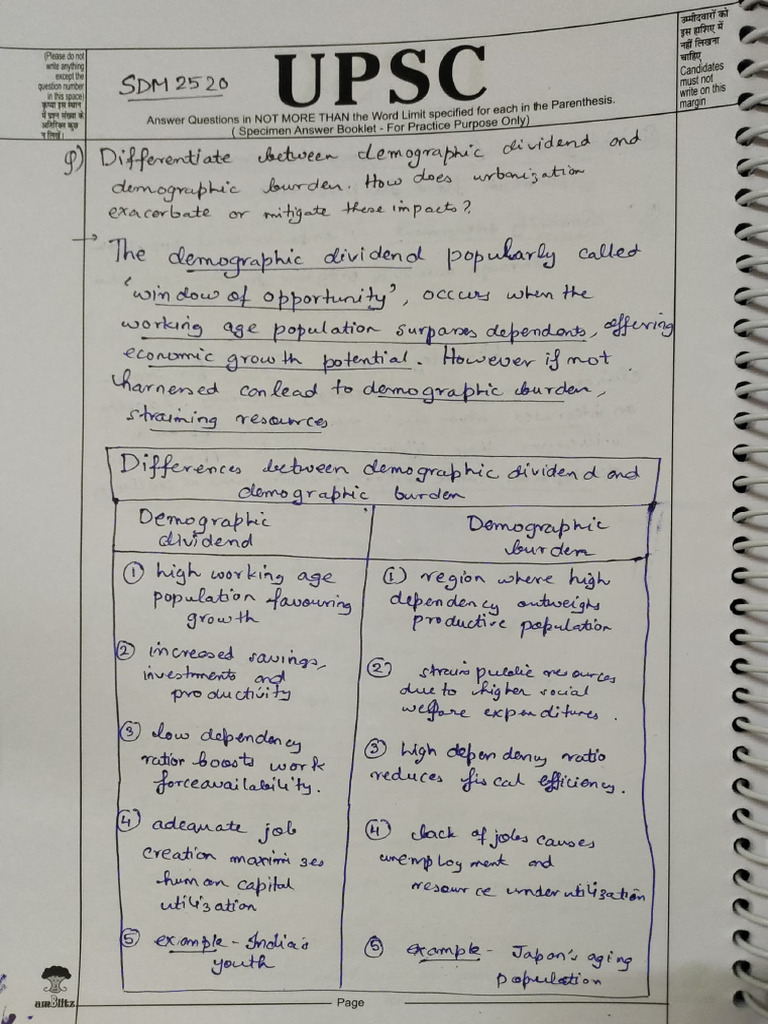 (Please do not
write anything
except the
question number
in this space)
कृपया इस स्थान
में प्रश्न संख्या के
अतिरिक्त कुछ
न लिखें।
SDM 2520
UPSC
Answer Questions in NOT MORE THAN the Word Limit specified for each in the Parenthesis.
( Specimen Answer Booklet - For Practice Purpose Only)
उम्मीदवारों को
इस हाशिए में
नहीं लिखना
चाहिए
Candidates
must not
write on this
margin
Q) Differentiate between demographic dividend and
demographic burden. How does urbanization
exacerbate or mitigate these impacts?
→ The demographic dividend popularly called
'window of opportunity', occurs when the
working age population surpasses dependents, offering
economic growth potential. However if not
harnessed can lead to demographic burden,
straining resources
Differences between demographic dividend and
demographic burden
Demographic
dividend
① high working age
population favouring
growth
② increased savings,
investments and
productivity
③ low dependency
ratior boosts work
forceavailability.
④ adequate job
creation maximises
human capital
utilization
⑤ example - India's
youth
Demographic
burden
① region where high
dependency outweighs
productive population
② strain public resources
due to higher social
welfare expenditures.
③ high dependency ratio
reduces fiscal efficiency.
④ lack of jobs causes
unemployment and
resource underutilization
⑤ example - Japan's aging
population
amBlitz
Page